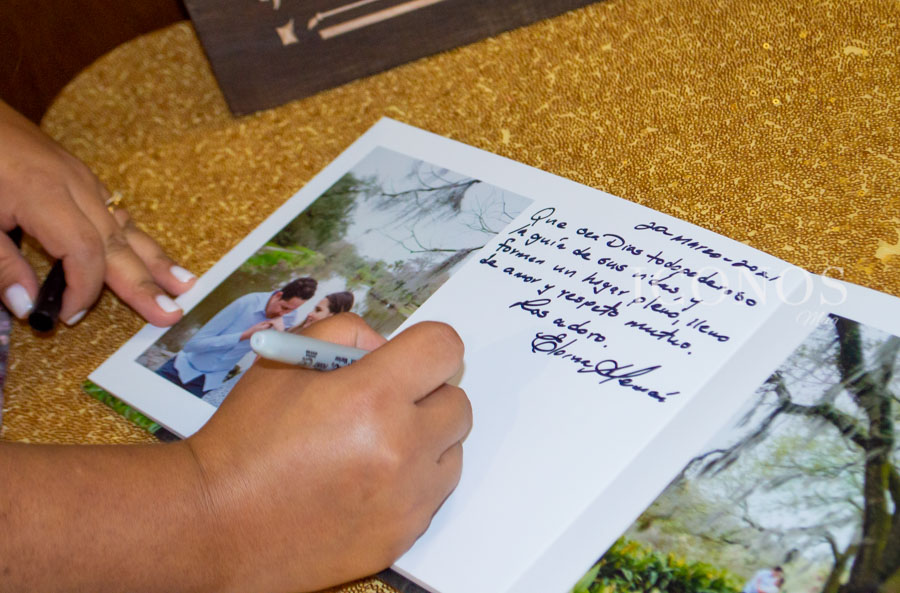 20-Marzo-2021
Que sea Dios todopoderoso
la guía de sus vidas, y
formen un hogar pleno, lleno
de amor y respeto mutuo.
Los adoro.
ICONOS